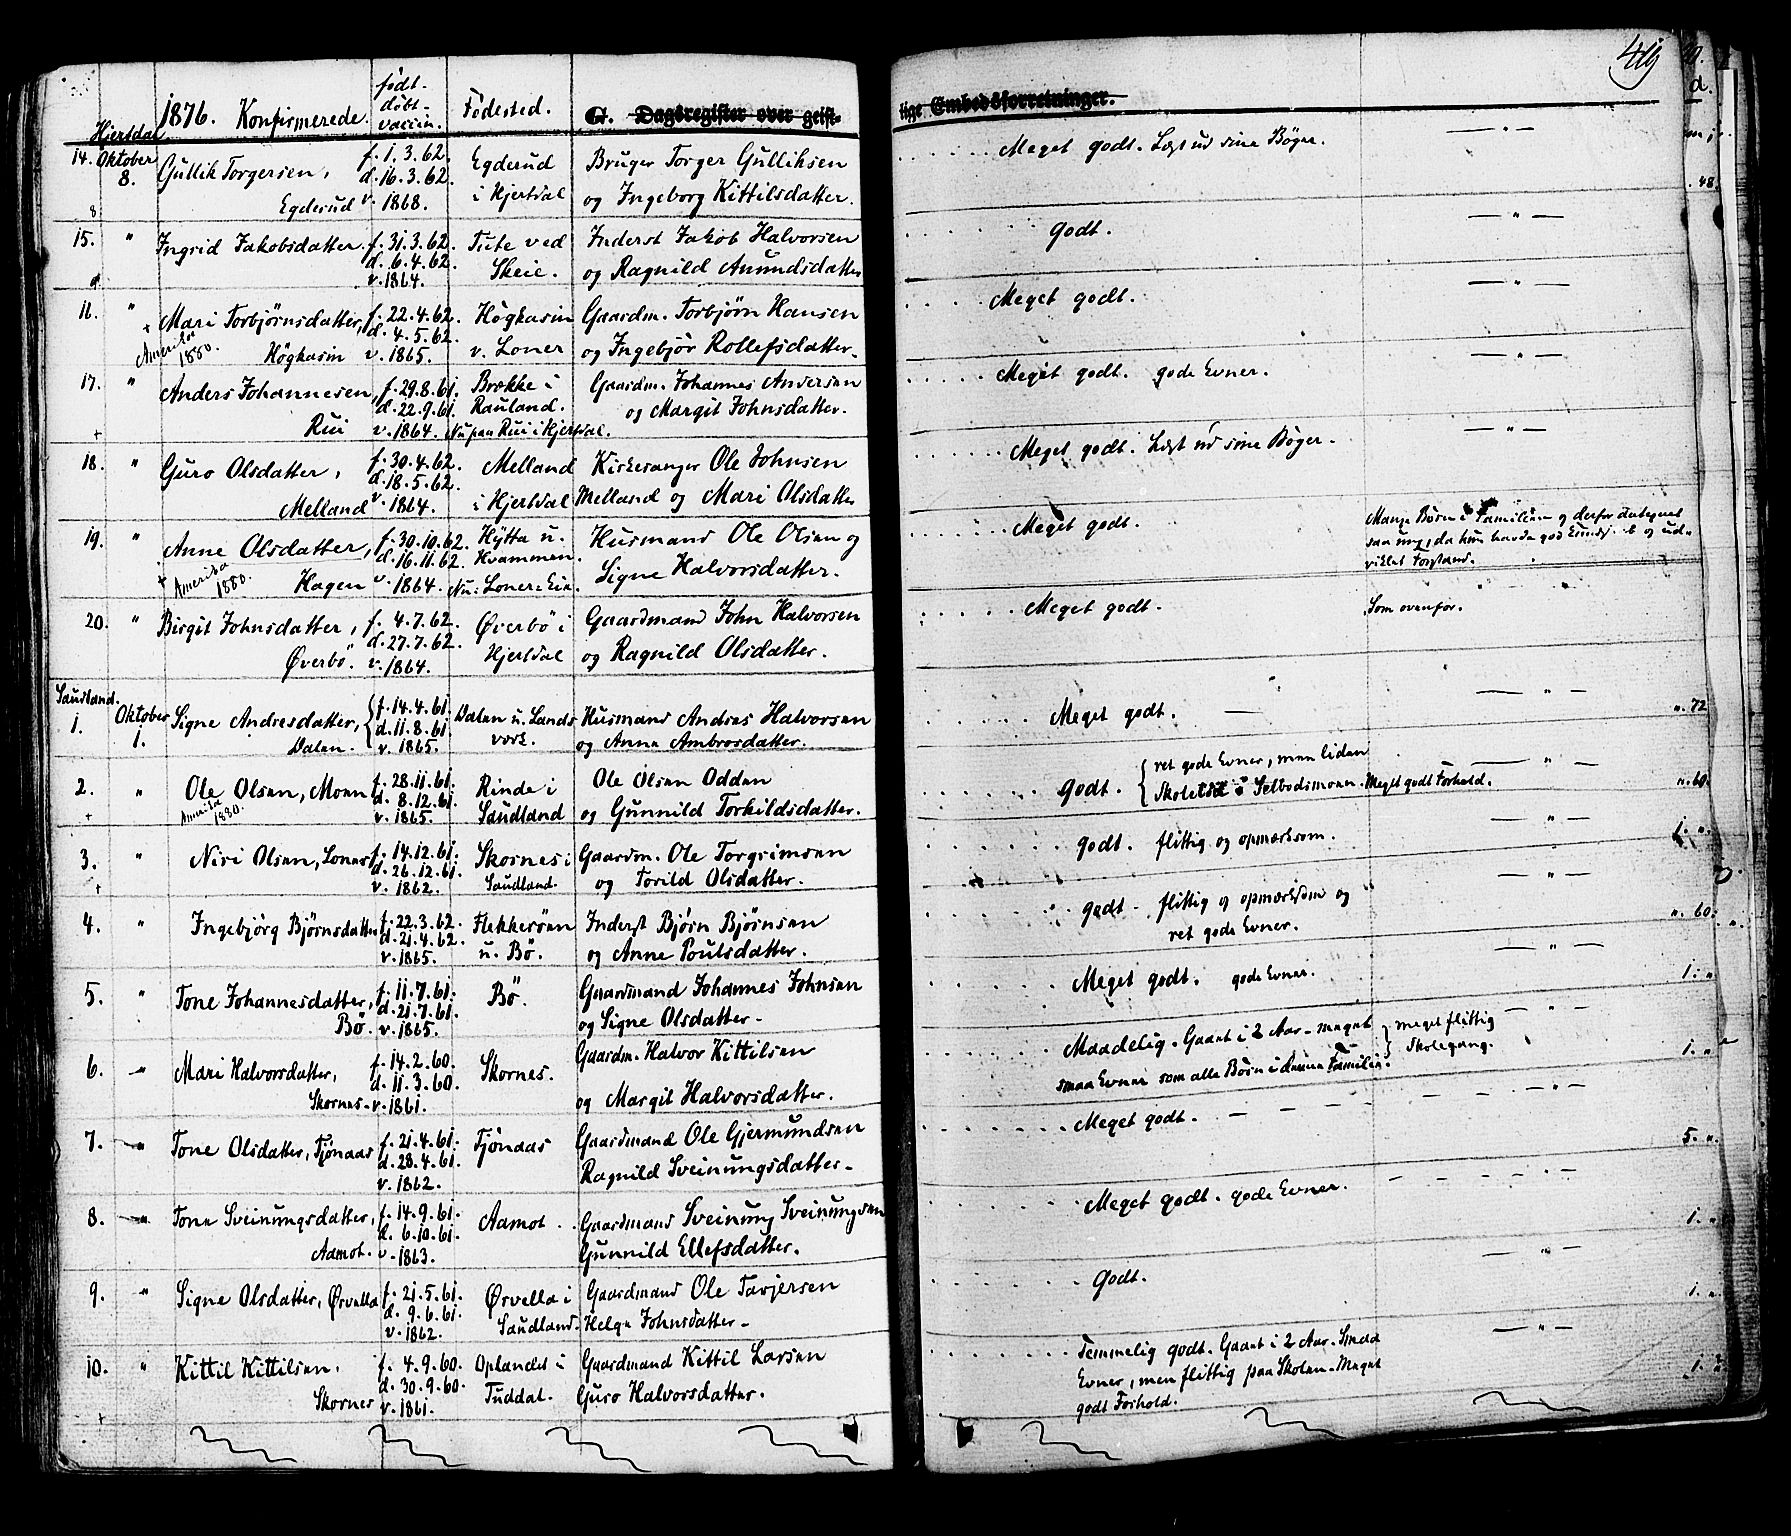 1876. Konfirmerede.
født. døbt. vaccin.
Fødested.
G. Dagsregister over geist-
lige Embedsforretninger.
419
Hjertdal
14. Oktober 8. Gullik Torgersen, Egderud
f. 1.3.62. d. 16.3.62. v. 1868.
Egderud i Hjertdal
Bruger Torger Gulliksen
og Ingeborg Kittilsdatter.
Meget godt. Læst ud sine Bøger.
— " —
15. " Ingrid Jakobsdatter.
f. 31.3.62. d. 6.4.62. v. 1864.
Tute ved Skeie.
Inderst Jakob Halvorsen
og Ragnild Amundsdatter
Godt.
— " —
16. " Mari Torbjørnsdatter, Høgkasin
Amerika 1880.
f. 22.4.62. d. 4.5.62. v. 1865.
Høgkasin v. Loner
Gaardm. Torbjørn Hansen
og Ingebjør Rollefsdatter.
Meget godt.
— " —
17. " Anders Johannesen, Rui
f. 29.8.61. d. 22.9.61. v. 1864.
Brække i Rauland. Nu paa Rui i Hjertdal.
Gaardm. Johannes Andersen
og Margit Johnsdatter.
Meget godt. gode Evner.
— " —
18. " Guro Olsdatter, Melland
f. 30.4.62. d. 18.5.62. v. 1864.
Melland i Hjertdal
Kirkesanger Ole Johnsen
Melland og Mari Olsdatter
Meget godt. Læst ud sine Bøger.
— " —
19. " Anne Olsdatter, Hagen
Amerika 1880.
f. 30.10.62. d. 16.11.62. v. 1864.
Hytta u. Kvammen. Nu: Loner-Eie.
Husmand Ole Olsen og
Signe Halvorsdatter.
Meget godt.
Mange Børn i Familien og derfor antegnet
saa ung, da hun havde god Kundsk. og ud-
viklet Forstand.
20. " Birgit Johnsdatter, Øverbö.
f. 4.7.62. d. 27.7.62. v. 1864.
Øverbö i Hjertdal
Gaardmand John Halvorsen
og Ragnild Olsdatter.
Meget godt.
Som ovenfor.
Saudland.
1. Oktober 1. Signe Andresdatter, Dalen.
f. 14.4.61. d. 11.8.61. v. 1865.
Dalen u. Landsverk.
Husmand Andres Halvorsen
og Anne Ambrosdatter.
Meget godt. —
— " —
". 72
2. " Ole Olsen, Moen
Amerika 1880.
f. 28.11.61. d. 8.12.61. v. 1865.
Rinde i Saudland
Ole Olsen Odden
og Gunnild Torkildsdatter.
godt. ret gode Evner, men liden
Skoletid i Selbodsmoen. Meget godt Forhold.
— " —
". 60.
3. " Niri Olsen, Lones
f. 14.12.61. d. 26.12.61. v. 1862.
Skornes i Saudland.
Gaardm. Ole Torgrimsen
og Torild Olsdatter.
godt. flittig og opmærksom.
— " —
1. ".
4. " Ingebjörg Bjørnsdatter
f. 22.3.62. d. 21.4.62. v. 1865.
Flekkerøen u. Bö.
Inderst Bjørn Bjørnsen
og Anne Poulsdatter.
godt - flittig og opmærksom og
ret gode Evner.
— " —
". 60.
5. " Tone Johannesdatter, Bö.
f. 11.7.61. d. 21.7.61. v. 1865.
Bö.
Gaardmand Johannes Johnsen
og Signe Olsdatter.
Meget godt. gode Evner.
— " —
1. "
6. " Mari Halvorsdatter, Skornes.
f. 14.2.60. d. 11.3.60. v. 1861.
Skornes.
Gaardm. Halvor Kittilsen
og Margit Halvorsdatter.
Maadelig. Gaaet i 2 Aar. meget
smaa Evner som alle Børn i denne Familie.
meget flittig Skolegang.
— " —
1. "
7. " Tone Olsdatter, Tjönaas
f. 21.4.61. d. 28.4.61. v. 1862.
Tjönaas
Gaardmand Ole Gjermundsen
Ragnild Sveinungsdatter.
Meget godt.
— " —
5. ".
8. " Tone Sveinungsdatter, Aamot.
f. 14.9.61. d. 6.10.61. v. 1863.
Aamot.
Gaardmand Sveinung Sveinungsen
Gunnild Ellefsdatter.
Meget godt. gode Evner.
1. "
9. " Signe Olsdatter, Ørvella
f. 21.5.61. d. 9.6.61. v. 1862.
Ørvella i Saudland.
Gaardmand Ole Tarjersen
Helge Johnsdatter.
Godt.
— " —
1. ".
10. " Kittil Kittilsen. Skornes
f. 4.9.60. d. 30.9.60. v. 1861.
Oplandet i Tuddal.
Gaardmand Kittil Larsen
Guro Halvorsdatter.
Temmelig godt. Gaaet i 2 Aar. Smaa
Evner, men flittig paa Skolen. Meget
godt Forhold.
— " —
1. "